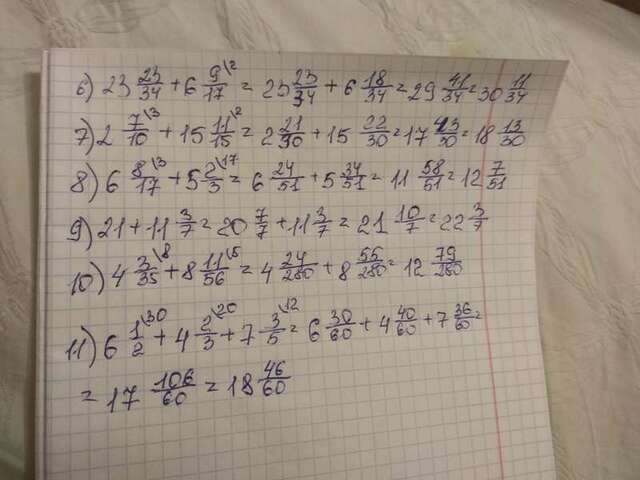 6) 23 23/34 + 6 9/17\2 = 23 23/34 + 6 18/34 = 29 41/34 = 30 11/34
7) 2 7/10\3 + 15 11/15\2 = 2 21/30 + 15 22/30 = 17 43/30 = 18 13/30
8) 6 8/17\3 + 5 2/3\17 = 6 24/51 + 5 34/51 = 11 58/51 = 12 7/51
9) 21 + 11 3/7 = 20 7/7 + 11 3/7 = 21 10/7 = 22 3/7
10) 4 3/35\8 + 8 11/56\5 = 4 24/280 + 8 55/280 = 12 79/280
11) 6 1/2\30 + 4 2/3\20 + 7 3/5\12 = 6 30/60 + 4 40/60 + 7 36/60 =
= 17 106/60 = 18 46/60